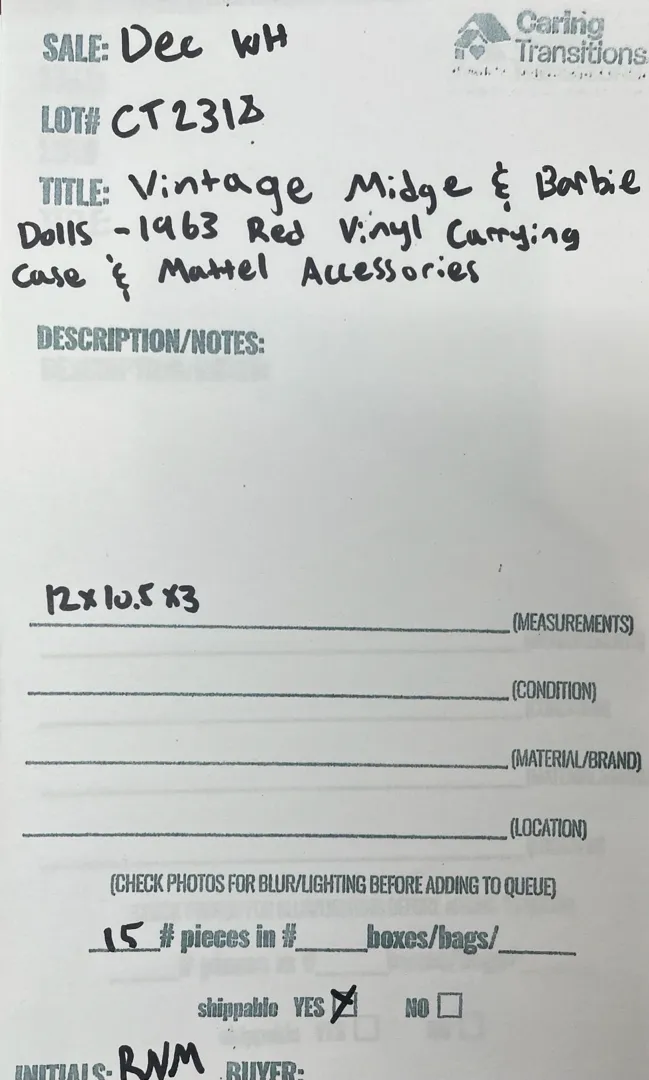 Caring
Transitions
SALE: Dec WH
LOT# CT2318
TITLE: Vintage Midge & Barbie
Dolls - 1963 Red Vinyl Carrying
Case & Mattel Accessories
DESCRIPTION/NOTES:
12x10.5x3 (MEASUREMENTS)
(CONDITION)
(MATERIAL/BRAND)
(LOCATION)
(CHECK PHOTOS FOR BLUR/LIGHTING BEFORE ADDING TO QUEUE)
15 # pieces in #_____boxes/bags/_____
shippable YES NO
INITIALS: RNM BUYER: